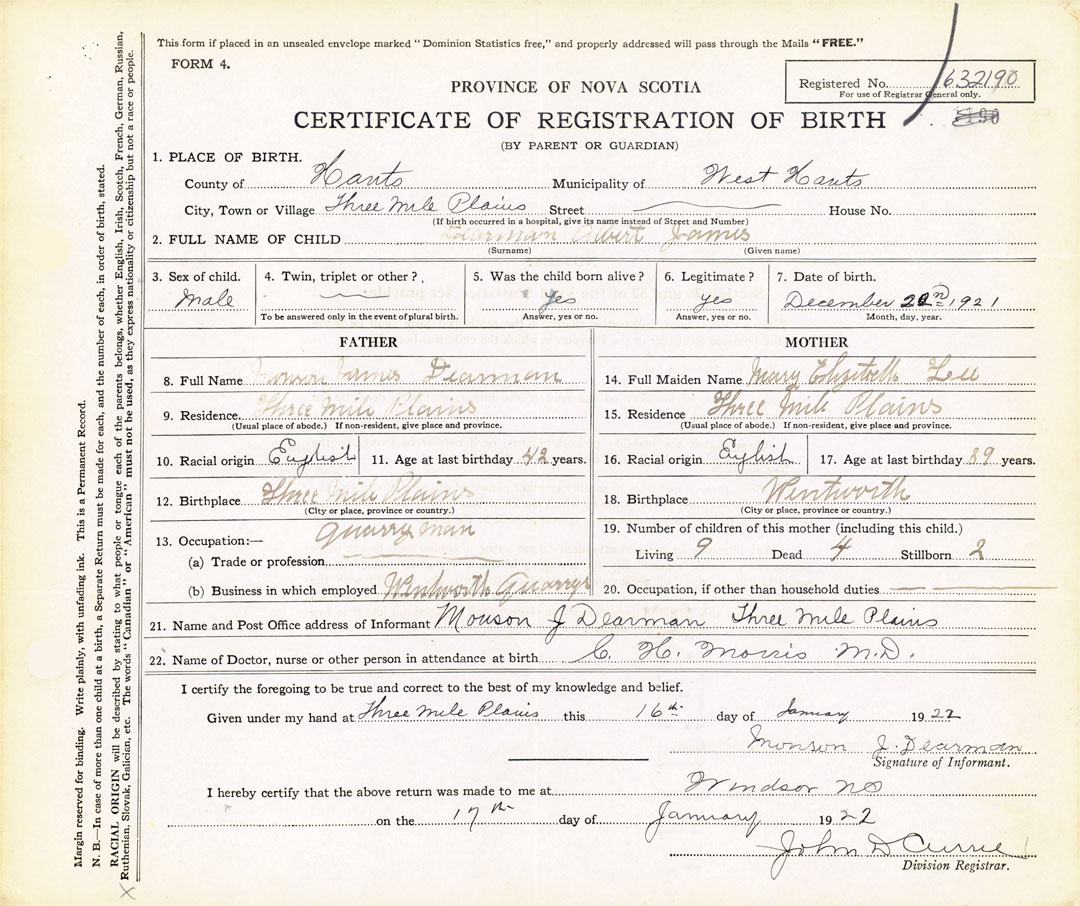 This form if placed in an unsealed envelope marked "Dominion Statistics free," and properly addressed will pass through the Mails "FREE."
FORM 4.
Registered No. 632190
For use of Registrar General only.
PROVINCE OF NOVA SCOTIA
CERTIFICATE OF REGISTRATION OF BIRTH
(BY PARENT OR GUARDIAN)
1. PLACE OF BIRTH.
County of Hants Municipality of West Hants
City, Town or Village Three Mile Plains Street House No.
(If birth occurred in a hospital, give its name instead of Street and Number)
2. FULL NAME OF CHILD Dearman Albert James
(Surname) (Given name)
3. Sex of child. 4. Twin, triplet or other? 5. Was the child born alive? 6. Legitimate? 7. Date of birth.
Male yes yes December 1921
To be answered only in the event of plural birth. Answer, yes or no. Answer, yes or no. Month, day, year.
FATHER
8. Full Name James Dearman
9. Residence Three Mile Plains
(Usual place of abode.) If non-resident, give place and province.
10. Racial origin English 11. Age at last birthday 42 years.
12. Birthplace Three Mile Plains
(City or place, province or country.)
13. Occupation:— Quarryman
(a) Trade or profession
(b) Business in which employed Wentworth Quarrys
MOTHER
14. Full Maiden Name Mary Elizabeth Lee
15. Residence Three Mile Plains
(Usual place of abode.) If non-resident, give place and province.
16. Racial origin English 17. Age at last birthday 39 years.
18. Birthplace Wentworth
(City or place, province or country.)
19. Number of children of this mother (including this child.)
Living 9 Dead 4 Stillborn 2
20. Occupation, if other than household duties
21. Name and Post Office address of Informant Monson J Dearman Three Mile Plains
22. Name of Doctor, nurse or other person in attendance at birth C. H. Morris M.D.
I certify the foregoing to be true and correct to the best of my knowledge and belief.
Given under my hand at Three Mile Plains this 16th day of January 1922
Monson J. Dearman
Signature of Informant.
I hereby certify that the above return was made to me at Windsor NS
on the 17th day of January 1922
John D Currie
Division Registrar.
Margin reserved for binding. Write plainly, with unfading ink. This is a Permanent Record.
N. B.—In case of more than one child at a birth, a Separate Return must be made for each, and the number of each, in order of birth, stated.
RACIAL ORIGIN will be described by stating to what people or tongue each of the parents belongs, whether English, Irish, Scotch, French, German, Russian,
Ruthenian, Slovak, Galician, etc. The words "Canadian" or "American" must not be used, as they express nationality or citizenship but not a race or people.